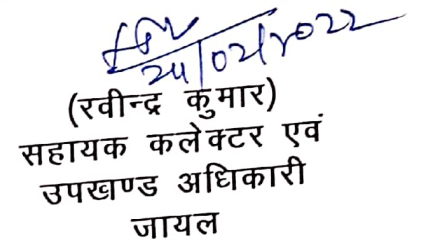 24/02/2022
(रवीन्द्र कुमार)
सहायक कलेक्टर एवं
उपखण्ड अधिकारी
जायल